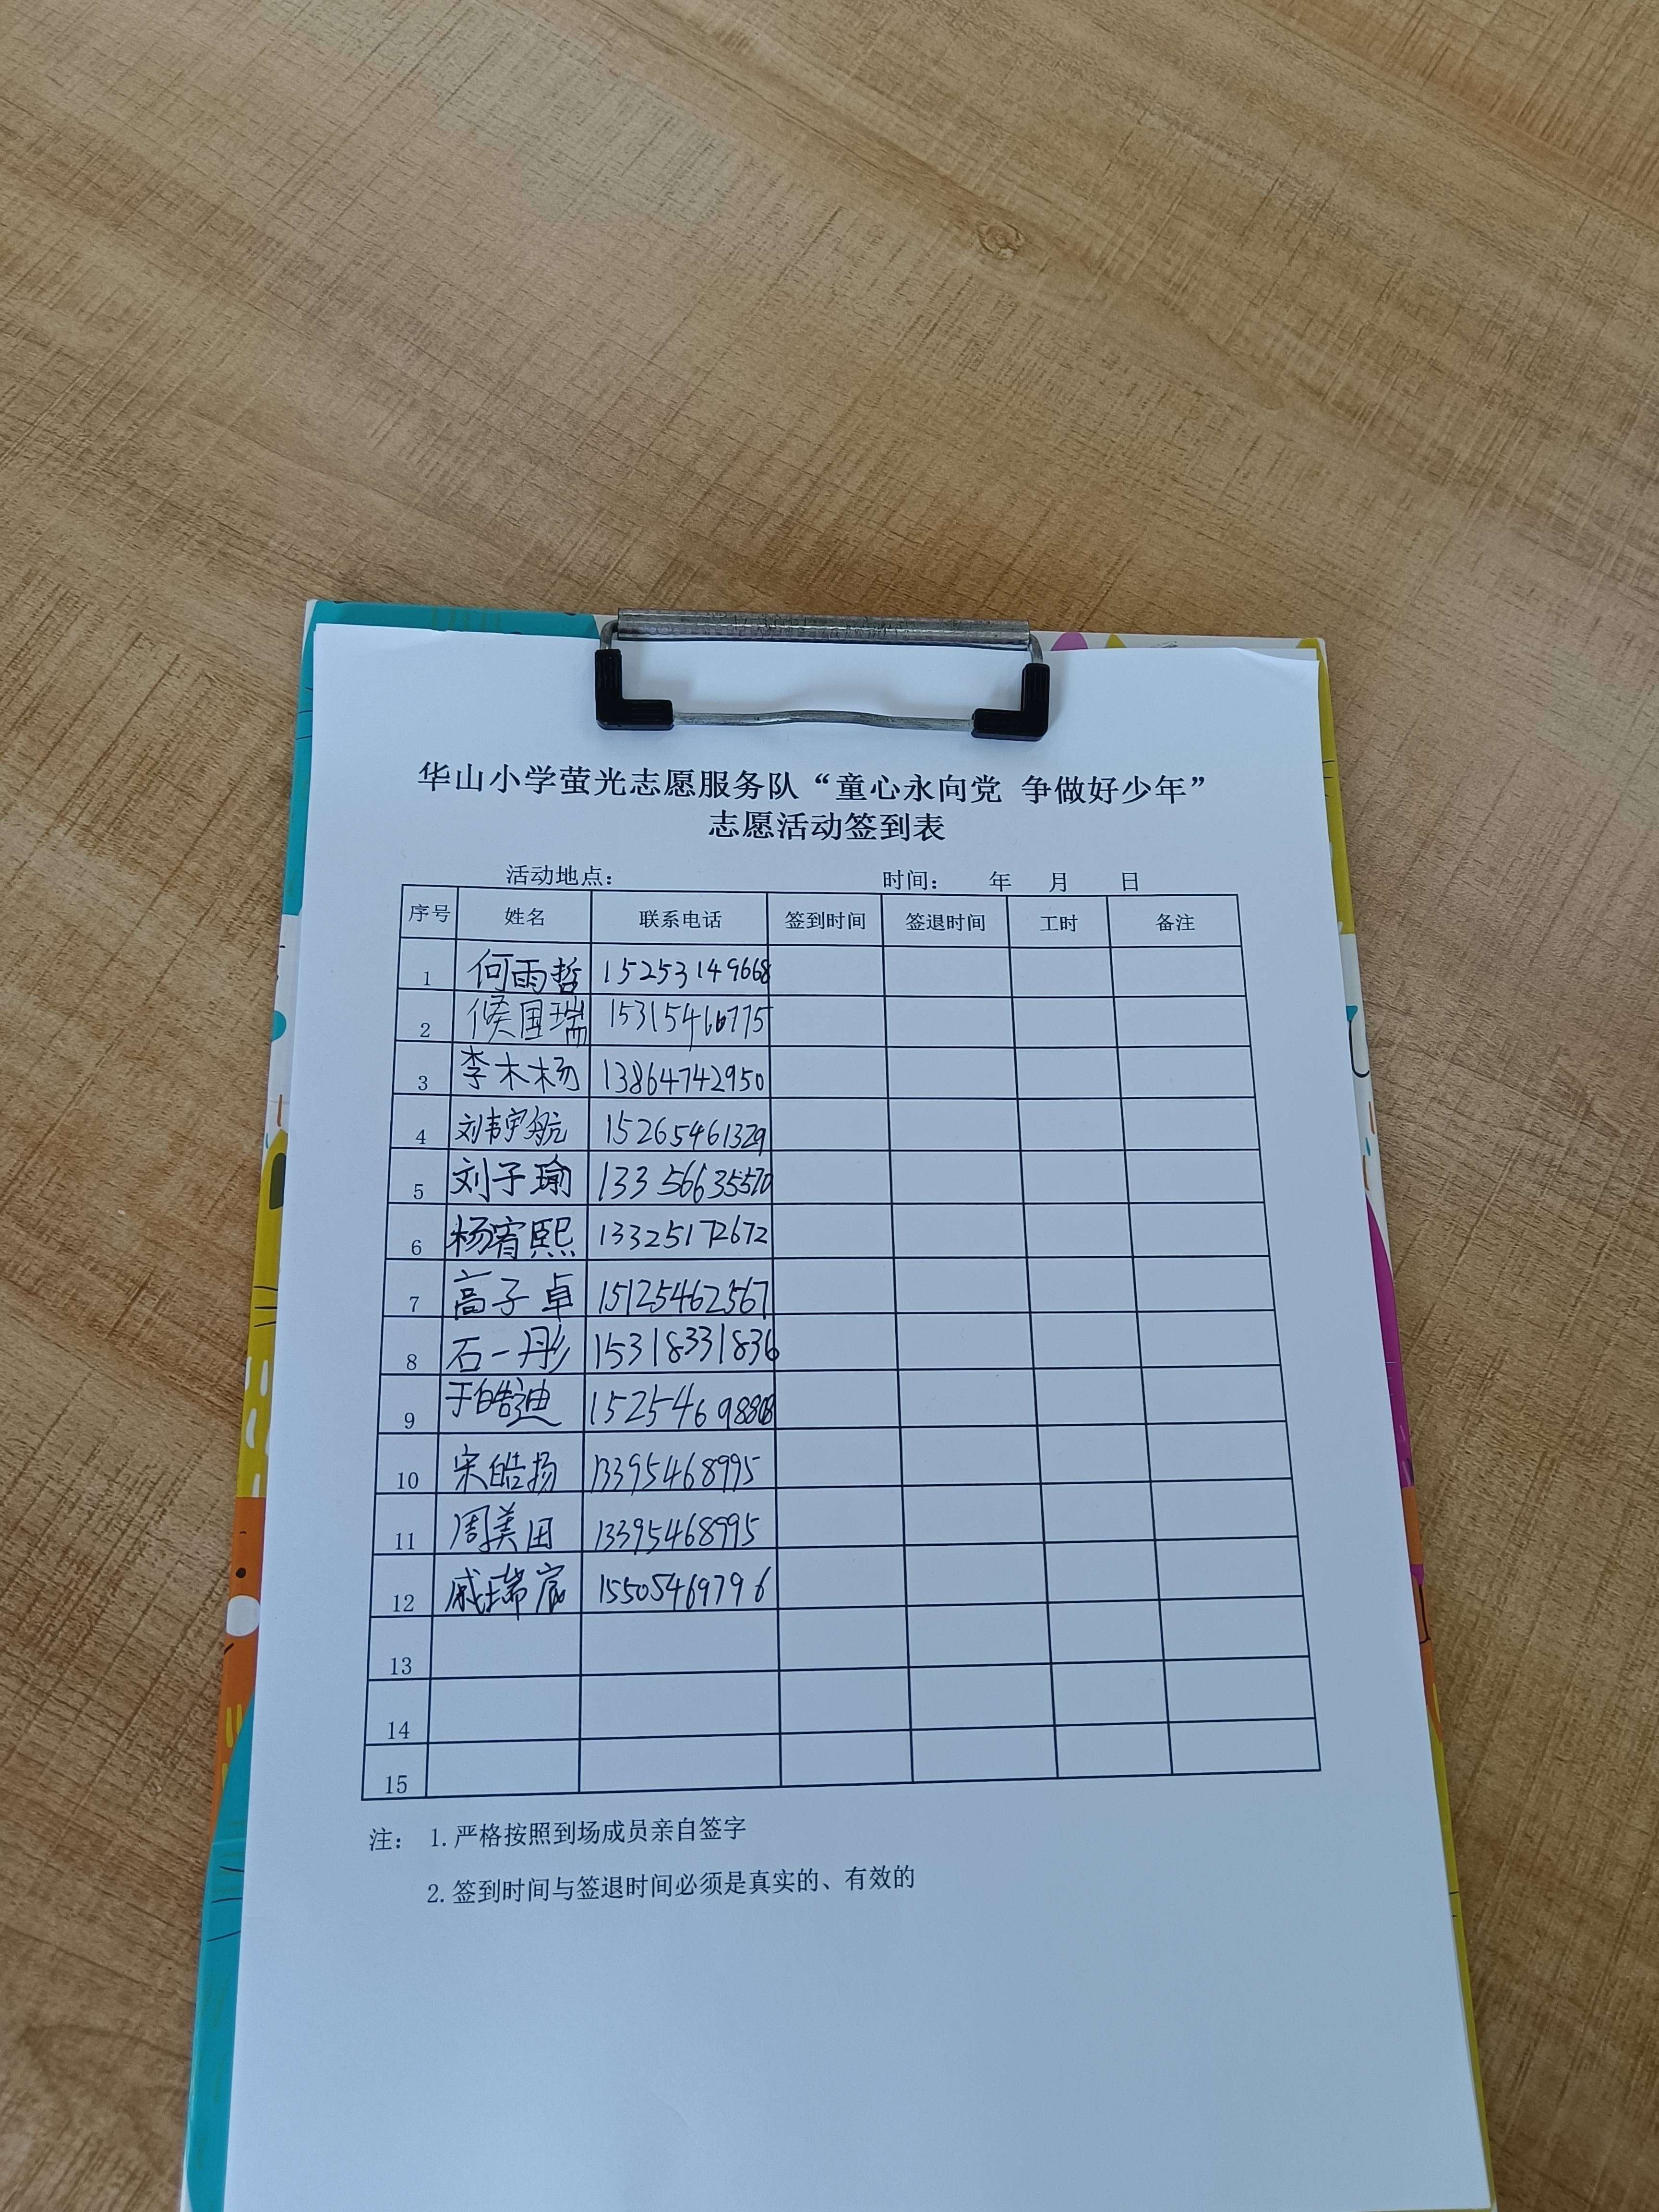 华山小学萤光志愿服务队“童心永向党 争做好少年”
志愿活动签到表
活动地点： 时间： 年 月 日
序号 姓名 联系电话 签到时间 签退时间 工时 备注
1 何雨哲 15253149668
2 候国瑞 15315466775
3 李木杨 13864742950
4 刘韦宇航 15265461329
5 刘子瑜 13356635570
6 杨宥熙 13325172672
7 高子卓 15125462567
8 石一彤 15318331836
9 于皓迪
10 宋皓扬 13395468995
11 周美田 13395468995
12 戚瑞宸 15505469796
13
14
15
注： 1.严格按照到场成员亲自签字
2.签到时间与签退时间必须是真实的、有效的